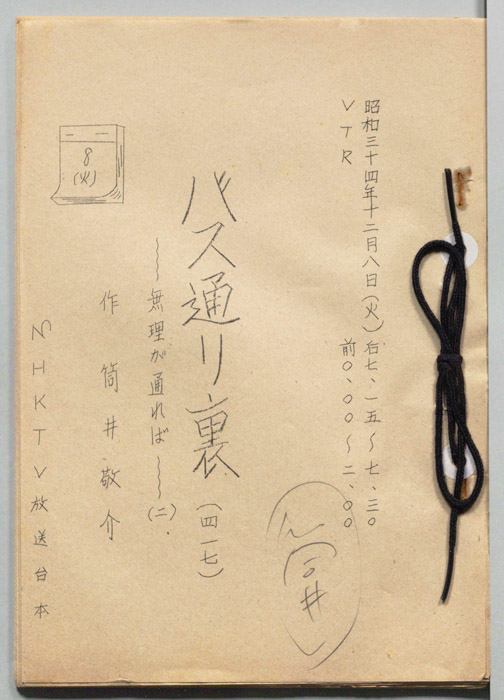 昭和三十四年十二月八日（火）后七、一五～七、三〇
VTR 前〇、〇〇～二、〇〇
筒井
バス通り裏（四一七）
～～無理が通れば～～（二）
作 筒井敬介
8
（火）
NHKTV放送台本